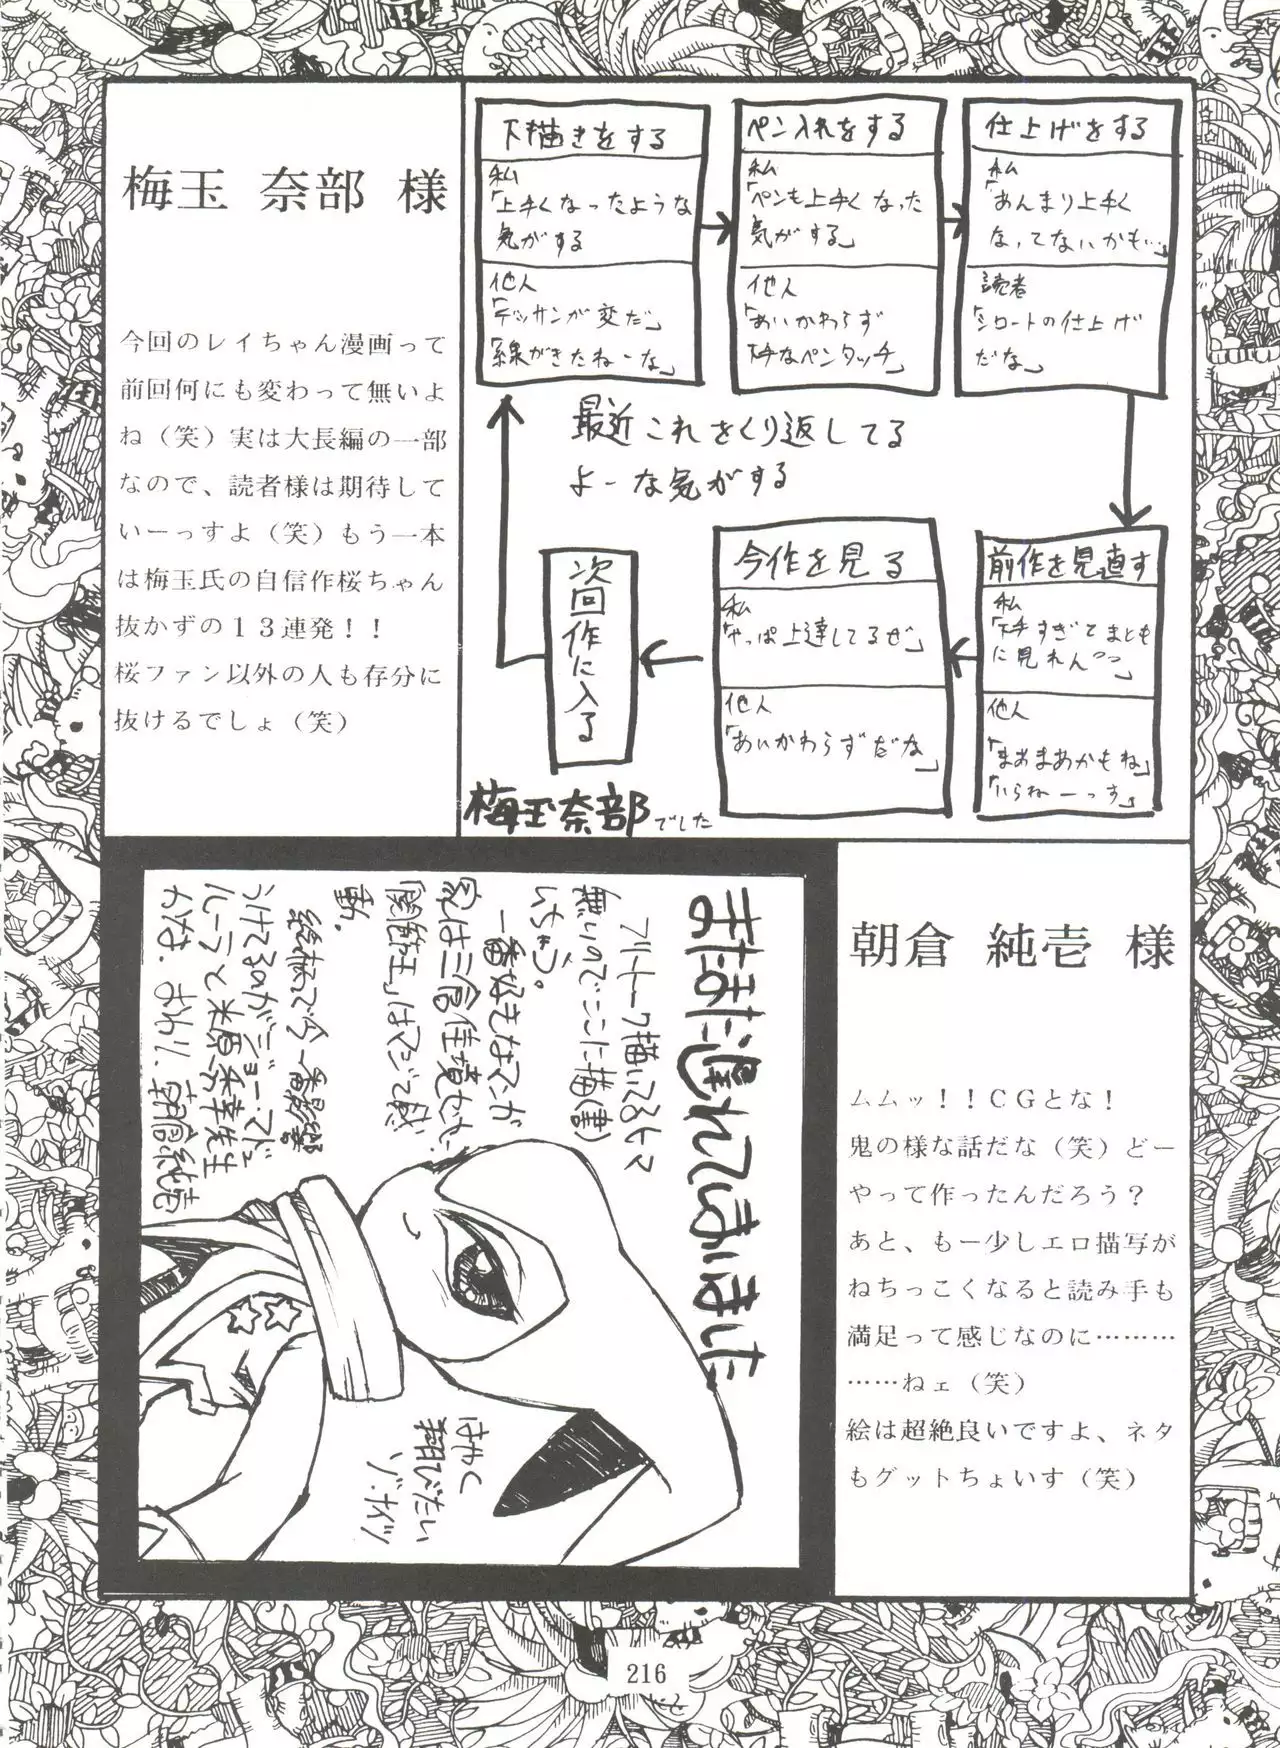 梅玉 奈部 様
今回のレイちゃん漫画って
前回何にも変わって無いよ
ね（笑）実は大長編の一部
なので、読者様は期待して
いーっすよ（笑）もう一本
は梅玉氏の自信作桜ちゃん
抜かずの１３連発！！
桜ファン以外の人も存分に
抜けるでしょ（笑）
下描きをする
私
「上手くなったような
気がする
他人
「デッサンが変だ」
「線がきたねーな」
ペン入れをする
私
「ペンも上手くなった
気がする」
他人
「あいかわらず
下手なペンタッチ」
仕上げをする
私
「あんまり上手く
なってないかも…」
読者
「シロートの仕上げ
だな」
最近これをくり返してる
よーな気がする
前作を見直す
私
「下手すぎてまとも
に見れん」
他人
「まあまあかもね」
「いらねーっす」
今作を見る
私
「やっぱ上達してるぜ」
他人
「あいかわらずだな」
次回作に入る
梅玉奈部でした
朝倉 純壱 様
ムムッ！！ＣＧとな！
鬼の様な話だな（笑）どー
やって作ったんだろう？
あと、もー少しエロ描写が
ねちっこくなると読み手も
満足って感じなのに………
……ねェ（笑）
絵は超絶良いですよ、ネタ
もグットちょいす（笑）
またまた遅れてしまいました
フリートーク描いてるヒマ
無いのでここに描(書)
いちゃう。
一番好きなマンガ
家は三倉佳境だな
「闇狩王」はマジで感
動。
絵柄で今一番影響
うけてるのがジョー・マド
ュレーラと米原朱幸先生
かな。おわり。朝倉純壱
はやく
翔びたい
ゾ.ナハッ
216